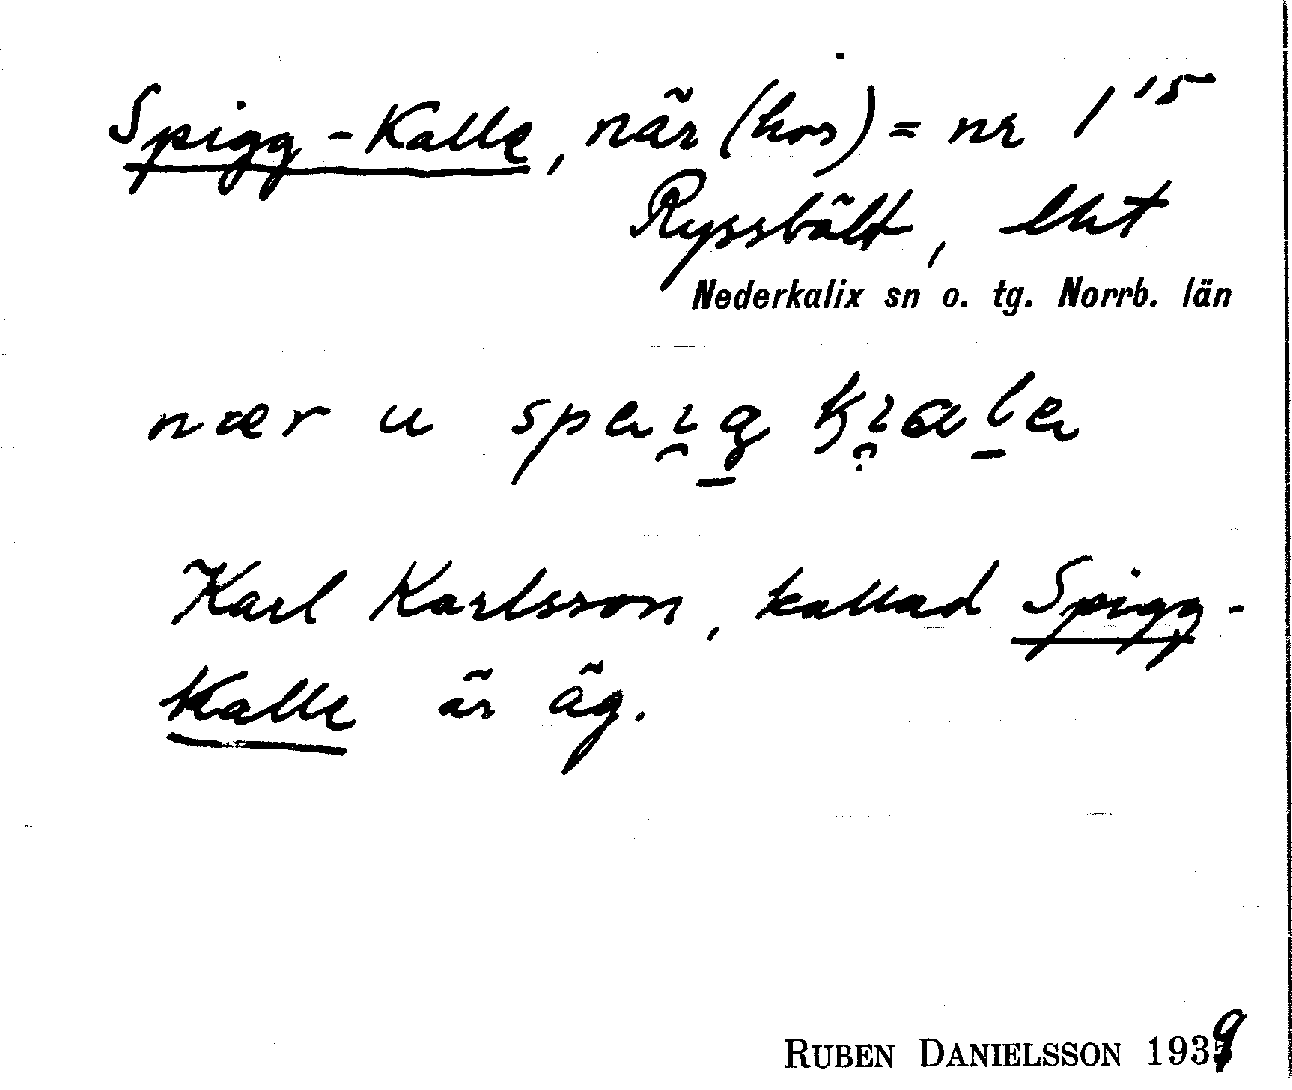 Spigg-Kalle, när (hos) = nr 1¹⁵
Ryssbält, ekt
Nederkalix sn o. tg. Norrb. län
nær u
Karl Karlsson, kallad Spigg-
Kalle är äg.
RUBEN DANIELSSON 1939